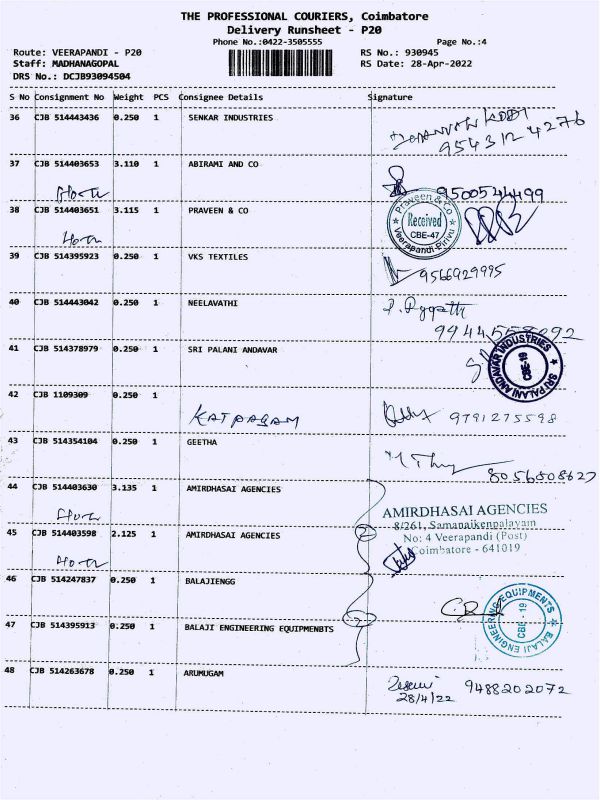 THE PROFESSIONAL COURIERS, Coimbatore
Delivery Runsheet - P20
Phone No.:0422-3505555
Page No.:4
Route: VEERAPANDI - P20
RS No.: 930945
Staff: MADHANAGOPAL
RS Date: 28-Apr-2022
DRS No.: DCJB93094504
S No Consignment No Weight PCS Consignee Details Signature
36 CJB 514443436 0.250 1 SENKAR INDUSTRIES
9543124276
37 CJB 514403653 3.110 1 ABIRAMI AND CO
9500544499
38 CJB 514403651 3.115 1 PRAVEEN & CO
Praveen & Co
Received
CBE-47
Veerapandi-Pirivu
39 CJB 514395923 0.250 1 VKS TEXTILES
9566929995
40 CJB 514443042 0.250 1 NEELAVATHI
41 CJB 514378979 0.250 1 SRI PALANI ANDAVAR
SRI PALANI ANDAVAR INDUSTRIES
CBE-19
42 CJB 1109309 0.250 1
KATPAGAM
9791275598
43 CJB 514354104 0.250 1 GEETHA
8056508627
44 CJB 514403630 3.135 1 AMIRDHASAI AGENCIES
AMIRDHASAI AGENCIES
8/261, Samanaikenpalayam
No: 4 Veerapandi (Post)
Coimbatore - 641019
45 CJB 514403598 2.125 1 AMIRDHASAI AGENCIES
46 CJB 514247837 0.250 1 BALAJIENGG
BALAJI ENGINEERING EQUIPMENTS
CBE - 19
47 CJB 514395913 0.250 1 BALAJI ENGINEERING EQUIPMENBTS
48 CJB 514263678 0.250 1 ARUMUGAM
9488202072
28/4/22